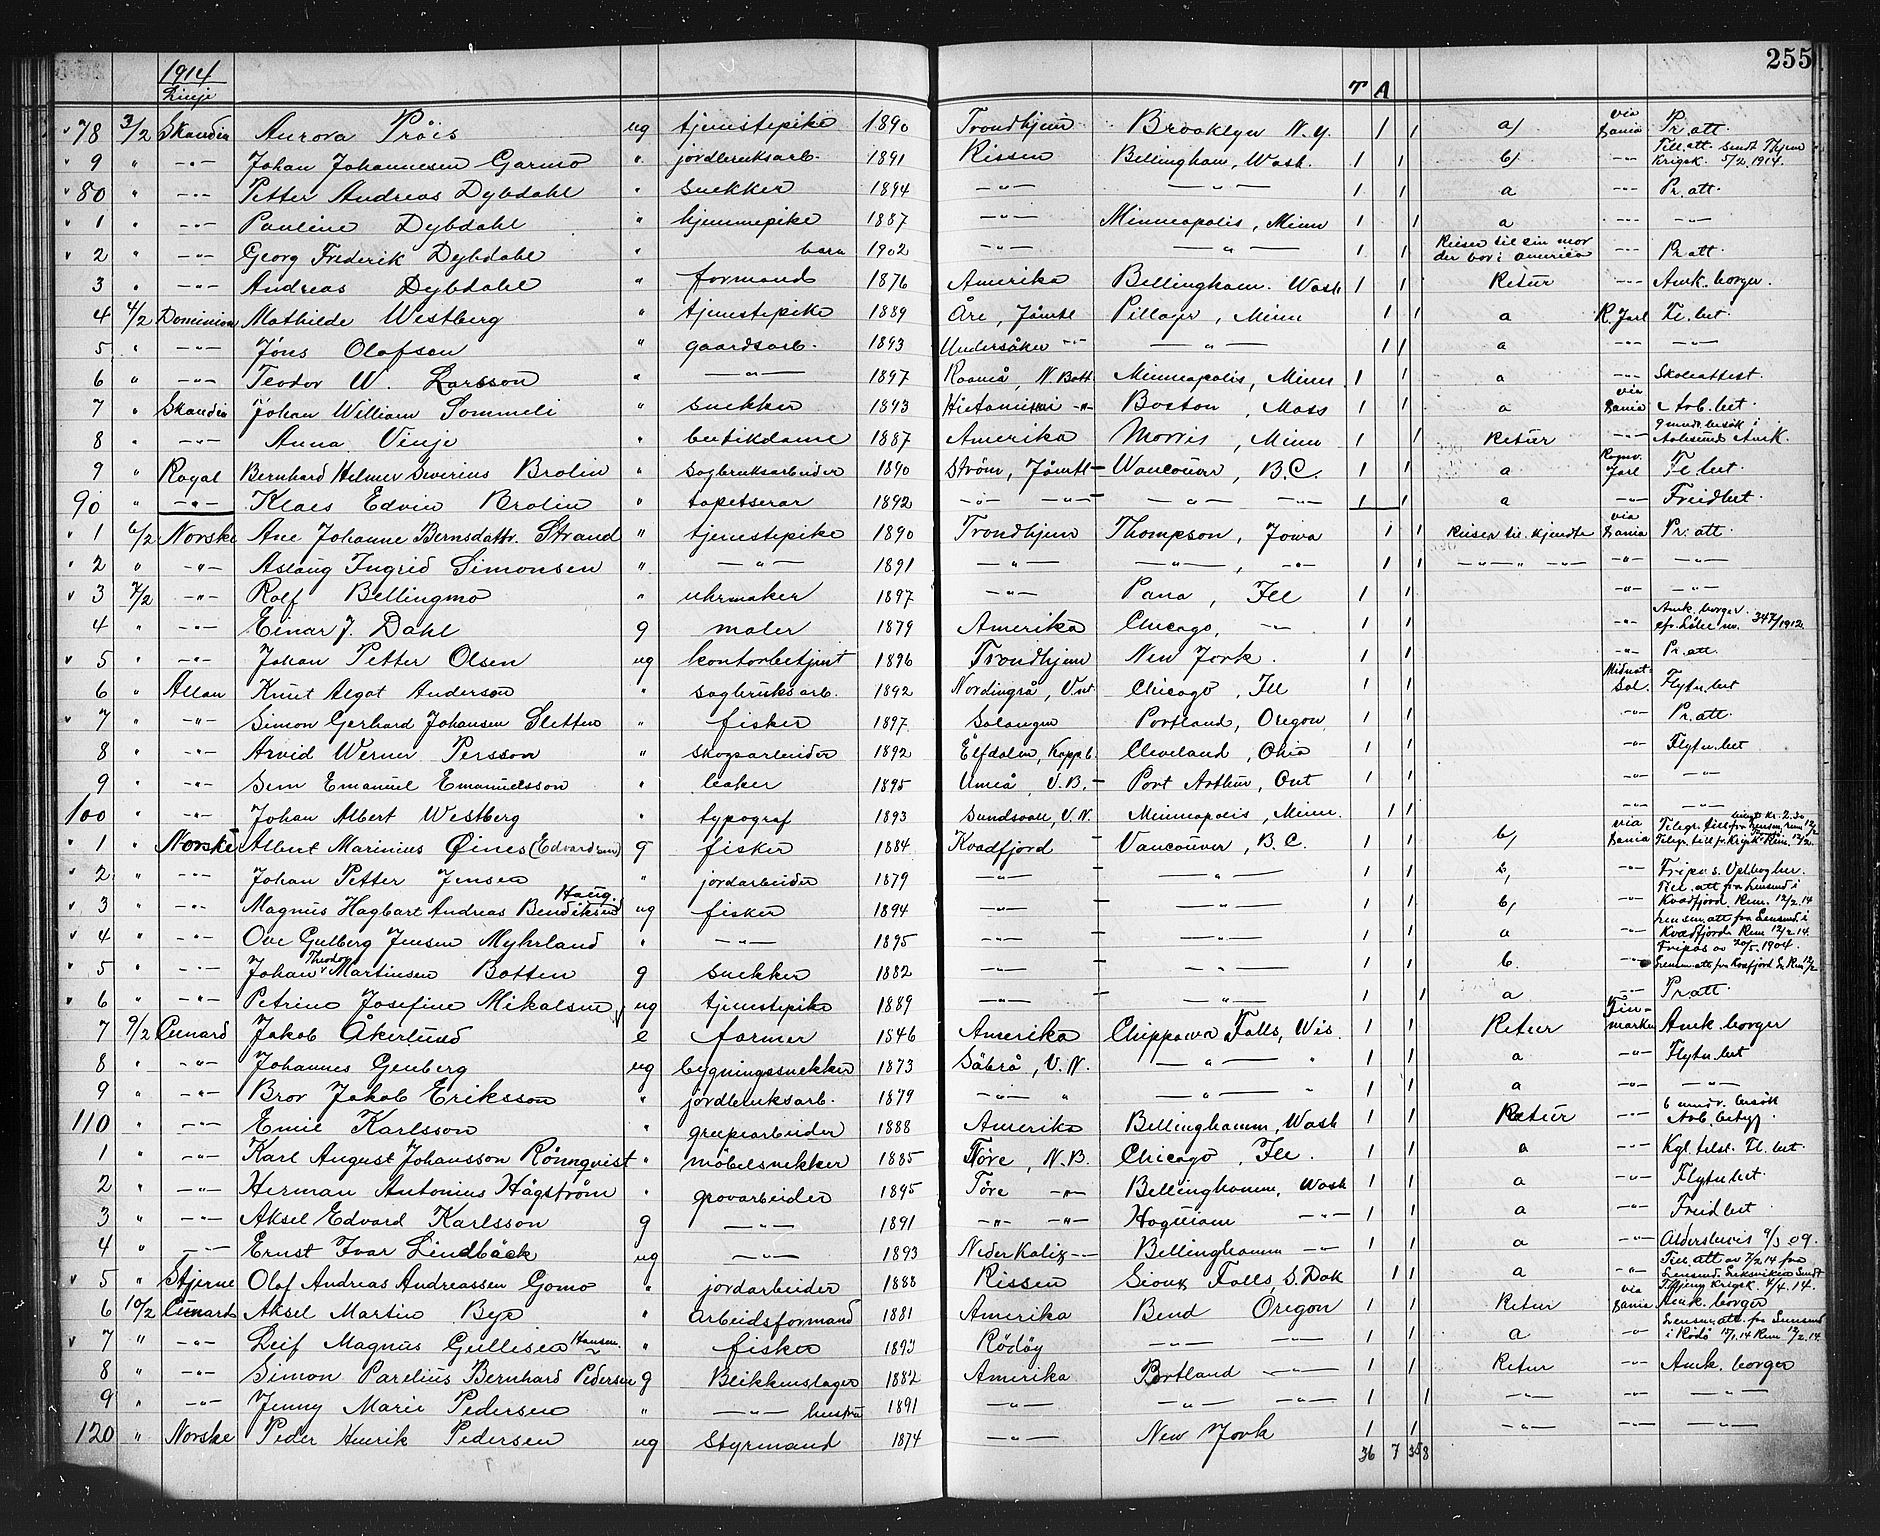 255
1914
Linje T A
78 3/2 Skandia Aurora Pröis ug tjenestepike 1890 Trondhjem Brooklyn N.Y. 1 1 a) via Dania Pr. att.
9 " -"- Johan Johannesen Garmo " jordbruksarb. 1891 Rissen Bellingham, Wash. 1 1 b) -"- Till. att. sendt Thjem Krigsk. 5/2 1914.
80 " -"- Petter Andreas Dybdahl " snekker 1894 -"- -"- 1 1 a -"- Pr. att.
1 " -"- Pauline Dybdahl " hjemmepike 1887 -"- Minneapolis, Minn 1 1 a -"- -"-
2 " -"- Georg Frederik Dybdahl " barn 1902 -"- -"- 1 1 Reiser til sin mor der bor i america -"- Pr. att
3 " -"- Andreas Dybdahl " formand 1876 Amerika Bellingham. Wash 1 1 Retur -"- Amk. borger.
4 4/2 Dominion Mathilde Westberg " tjenestepike 1889 Åre, Jämtl Pillager, Minn 1 1 a R. Jarl Fl. bet.
5 " -"- Jöns Olofson " gaardsarb. 1893 Undersåker -"- -"- 1 1 a -"- -"-
6 " -"- Teodor W. Larsson " -"- 1897 Raaneå, N. Bott. Minneapolis, Minn 1 1 a -"- Skoleattest.
7 " Skandia Johan William Sommeli " snekker 1893 Hietaniemi -"- Boston, Mass 1 1 a via Dania Arb. bet.
8 " -"- Anna Vinje " butikdame 1887 Amerika Morris, Minn 1 1 Retur -"- 9 mndr. besök i Aalesund Amk.
9 " Royal Bernhard Helmer Severius Brolin " sagbruksarbeider 1890 Ström, Jämtl - Vancouver, B.C. 1 1 a Ragnv. Jarl Fl. bet.
90 " -"- Klaes Edvin Brolin " tapetserar 1892 -"- -"- -"- -"- 1 1 a -"- Freidbet.
1 6/2 Norske Ane Johanne Bernsdattr. Strand " tjenestepike 1890 Trondhjem Thompson, Jowa 1 1 Reiser til kjendte via Dania Pr. att.
2 " -"- Aslaug Ingrid Simonsen " -"- 1891 -"- -"-, -"- 1 1 -"- -"- -"- -"- -"-
3 7/2 -"- Rolf Bellingmo " uhrmaker 1897 -"- Pana, Ill 1 1 -"- -"-
4 " -"- Einar J. Dahl g maler 1879 Amerika Chicago, -"- 1 1 -"- Amk. borger. cfr. Löbe no. 347/1912
5 " -"- Johan Petter Olsen ug kontorbetjent 1896 Trondhjem New York. 1 1 -"- Pr. att.
6 " Allan Knut Algot Anderson " sagbruksarb. 1892 Nordingrå, V.nt. Chicago, Ill 1 1 Midnat-Sol. Flytn. bet
7 " -"- Simon Gerhard Johansen Sletten " fisker 1897. Salangen Portland, Oregon 1 1 -"- Pr. att.
8 " -"- Arvid Werner Persson " skogsarbeider 1892 Elfdalen, Kopp b. Cleveland, Ohio 1 1 -"- Flytn. bet
9 " -"- Sven Emanuel Emanuelsson " baker 1895 Umeå, V.B. - Port Arthur, Ont 1 1 -"- -"-
100 " -"- Johan Albert Westberg " typograf 1893 Sundsvall, V.N. Minneapolis, Minn. 1 1 -"- -"-
1 " Norske Albert Marinius Öines (Edvardsen) g fisker 1884 Kvadfjord Vancouver, B.C. 1 1 b) via Dania
2 " -"- Johan Petter Jensen " jordarbeider 1879 -"- -"- 1 1 b, -"-
3 " -"- Magnus Hagbart Andreas Bendiksen Haug. ug fisker 1894 -"- - -"- 1 1 b, -"- Till. att fra Lensmd i Kvadfjord Rem. 12/2.14
4 " -"- Ove Gulberg Jensen Myhrland " -"- 1895 -"- -"- 1 1 a -"- Lensm. att fra Lensmd. i Kvadfjord Rem 12/2 14.
5 " -"- Johan Theodor Martinsen Botten g snekker 1882 -"- - -"- 1 1 b. -"- Fripas av 20/5. 1904. Lensm. att fra Kvafjord
6 " -"- Petrine Josefine Mikalsen ug tjenestepike 1889 -"- - -"- 1 1 a -"- Pr att.
7 9/2 Cunard Jakob Åkerlund e farmer 1846 Amerika Chippawa Falls, Wis. 1 1 Retur Finmarken Amk. borger
8 " -"- Johannes Genberg ug bygningssnekker 1873 Säbrå, V.N. -"- " 1 1 a -"- Flytn. bet
9 " -"- Bror Jakob Eriksson " jordbruksarb. 1879 -"- " -"- " 1 1 a -"- -"-
110 " -"- Emil Karlsson " grubearbeider 1888 Amerika Bellinghamm, Wash 1 1 Retur -"- 6 mndr. besök Arb. betyg.
1 " -"- Karl August Johansson Rönnqvist " möbelsnekker 1885 Töre, N.B. Chicago, Ill. 1 1 a -"- Kgl. telst. Fl. bet.
2 " -"- Herman Antonius Hågström " grovarbeider 1895 Töre -"- Bellinghamm, Wash 1 1 a -"- Flytn bet
3 " -"- Aksel Edvard Karlsson g -"- 1891 -"- -"- Hoquiam -"- 1 1 a -"- Freidbet.
4 " -"- Ernst Ivar Lindbäck ug -"- 1893 Neder Kalix -"- Bellinghamm -"- 1 1 a -"- Aldersbevis 9/3 09.
5 " Stjerne Olaf Andreas Andreassen Gomo " jordarbeider 1888 Rissen Sioux Falls S. Dak 1 1 a -"- Till. att av 7/2 14 fra Lensmd. Leksviken Sendt Tthjems Krigsk. 4/4. 14.
6 10/2 Cunard Aksel Martin Bye " arbeidsformand 1881 Amerika Bend Oregon 1 1 Retur via Dania Amk. borger
7 " -"- Leif Magnus Gullisen Hansen. " fisker 1893 Rödöy -"- -"- 1 1 a -"- Lensm. att. fra Lensmd i Rödö 17/1. 14 Rem 12/2. 14.
8 " -"- Simon Parelius Bernhard Pedersen g Blikkenslager 1882 Amerika Portland -"- 1 1 Retur -"- Amk. borger
9 " -"- Jenny Marie Pedersen " -"- hustru 1891 -"- -"- -"- 1 1 -"- -"- -"-
120 " Norske Peder Henrik Pedersen ug Styrmand 1874 -"- New York 1 1 -"- -"-
36 7 35 8